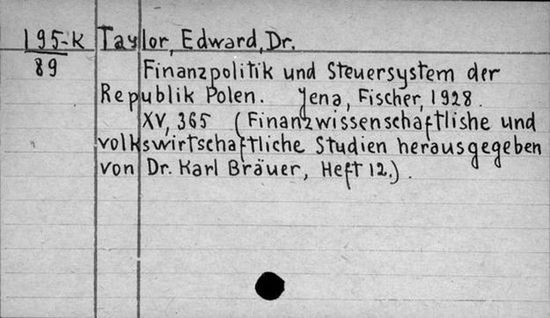 195-K Taylor, Edward, Dr.
89 Finanzpolitik und Steuersystem der
Republik Polen. Jena, Fischer, 1928.
XV, 365 (Finanzwissenschaftlishe und
volkswirtschaftliche Studien herausgegeben
von Dr. Karl Bräuer, Heft 12.).